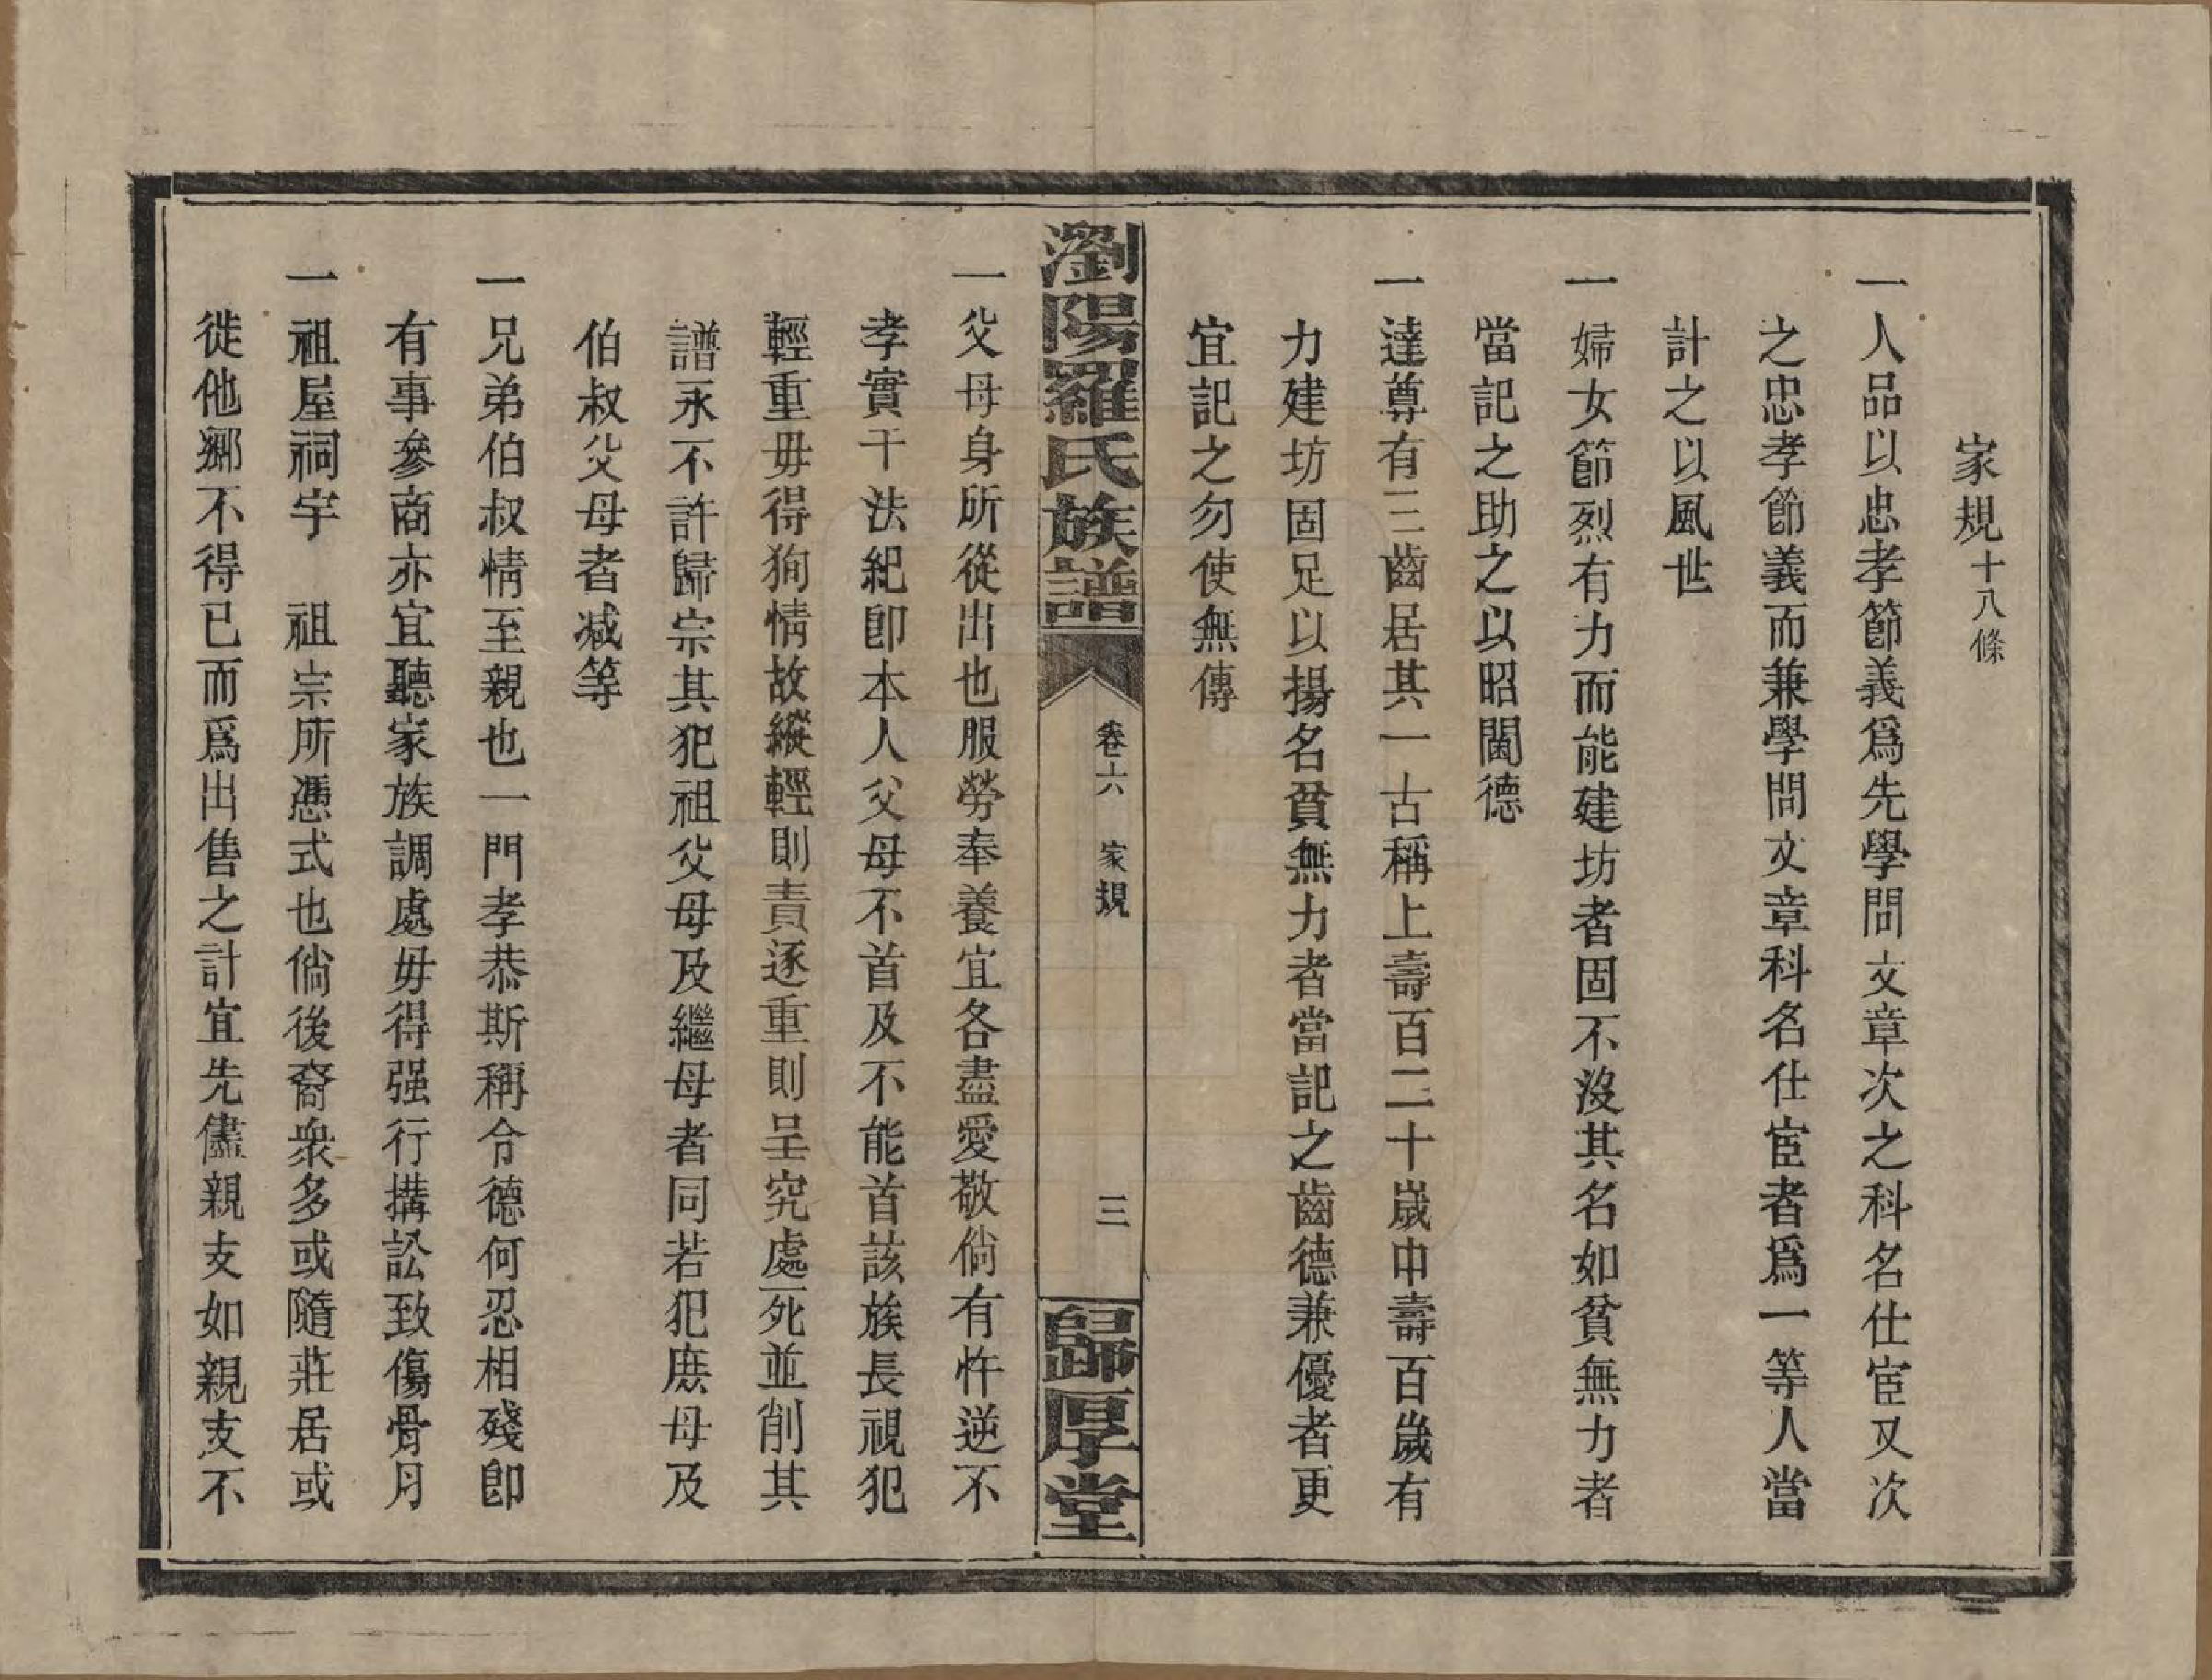 家規十八條
一人品以忠孝節義爲先學問文章次之科名仕宦又次
之忠孝節義而兼學問文章科名仕宦者爲一等人當
計之以風世
一婦女節烈有力而能建坊者固不沒其名如貧無力者
當記之助之以昭閫德
一達尊有三齒居其一古稱上壽百二十歲中壽百歲有
力建坊固足以揚名貧無力者當記之齒德兼優者更
宜記之勿使無傳
瀏陽羅氏族譜 卷六 家規 三 歸厚堂
一父母身所從出也服勞奉養宜各盡愛敬倘有忤逆不
孝實干法紀卽本人父母不首及不能首該族長視犯
輕重毋得狥情故縱輕則責逐重則呈究處死並削其
譜永不許歸宗其犯祖父母及繼母者同若犯庶母及
伯叔父母者減等
一兄弟伯叔情至親也一門孝恭斯稱令德何忍相殘卽
有事參商亦宜聽家族調處毋得强行搆訟致傷骨月
一祖屋祠宇　祖宗所憑式也倘後裔衆多或隨莊居或
徙他鄉不得已而爲出售之計宜先儘親支如親支不